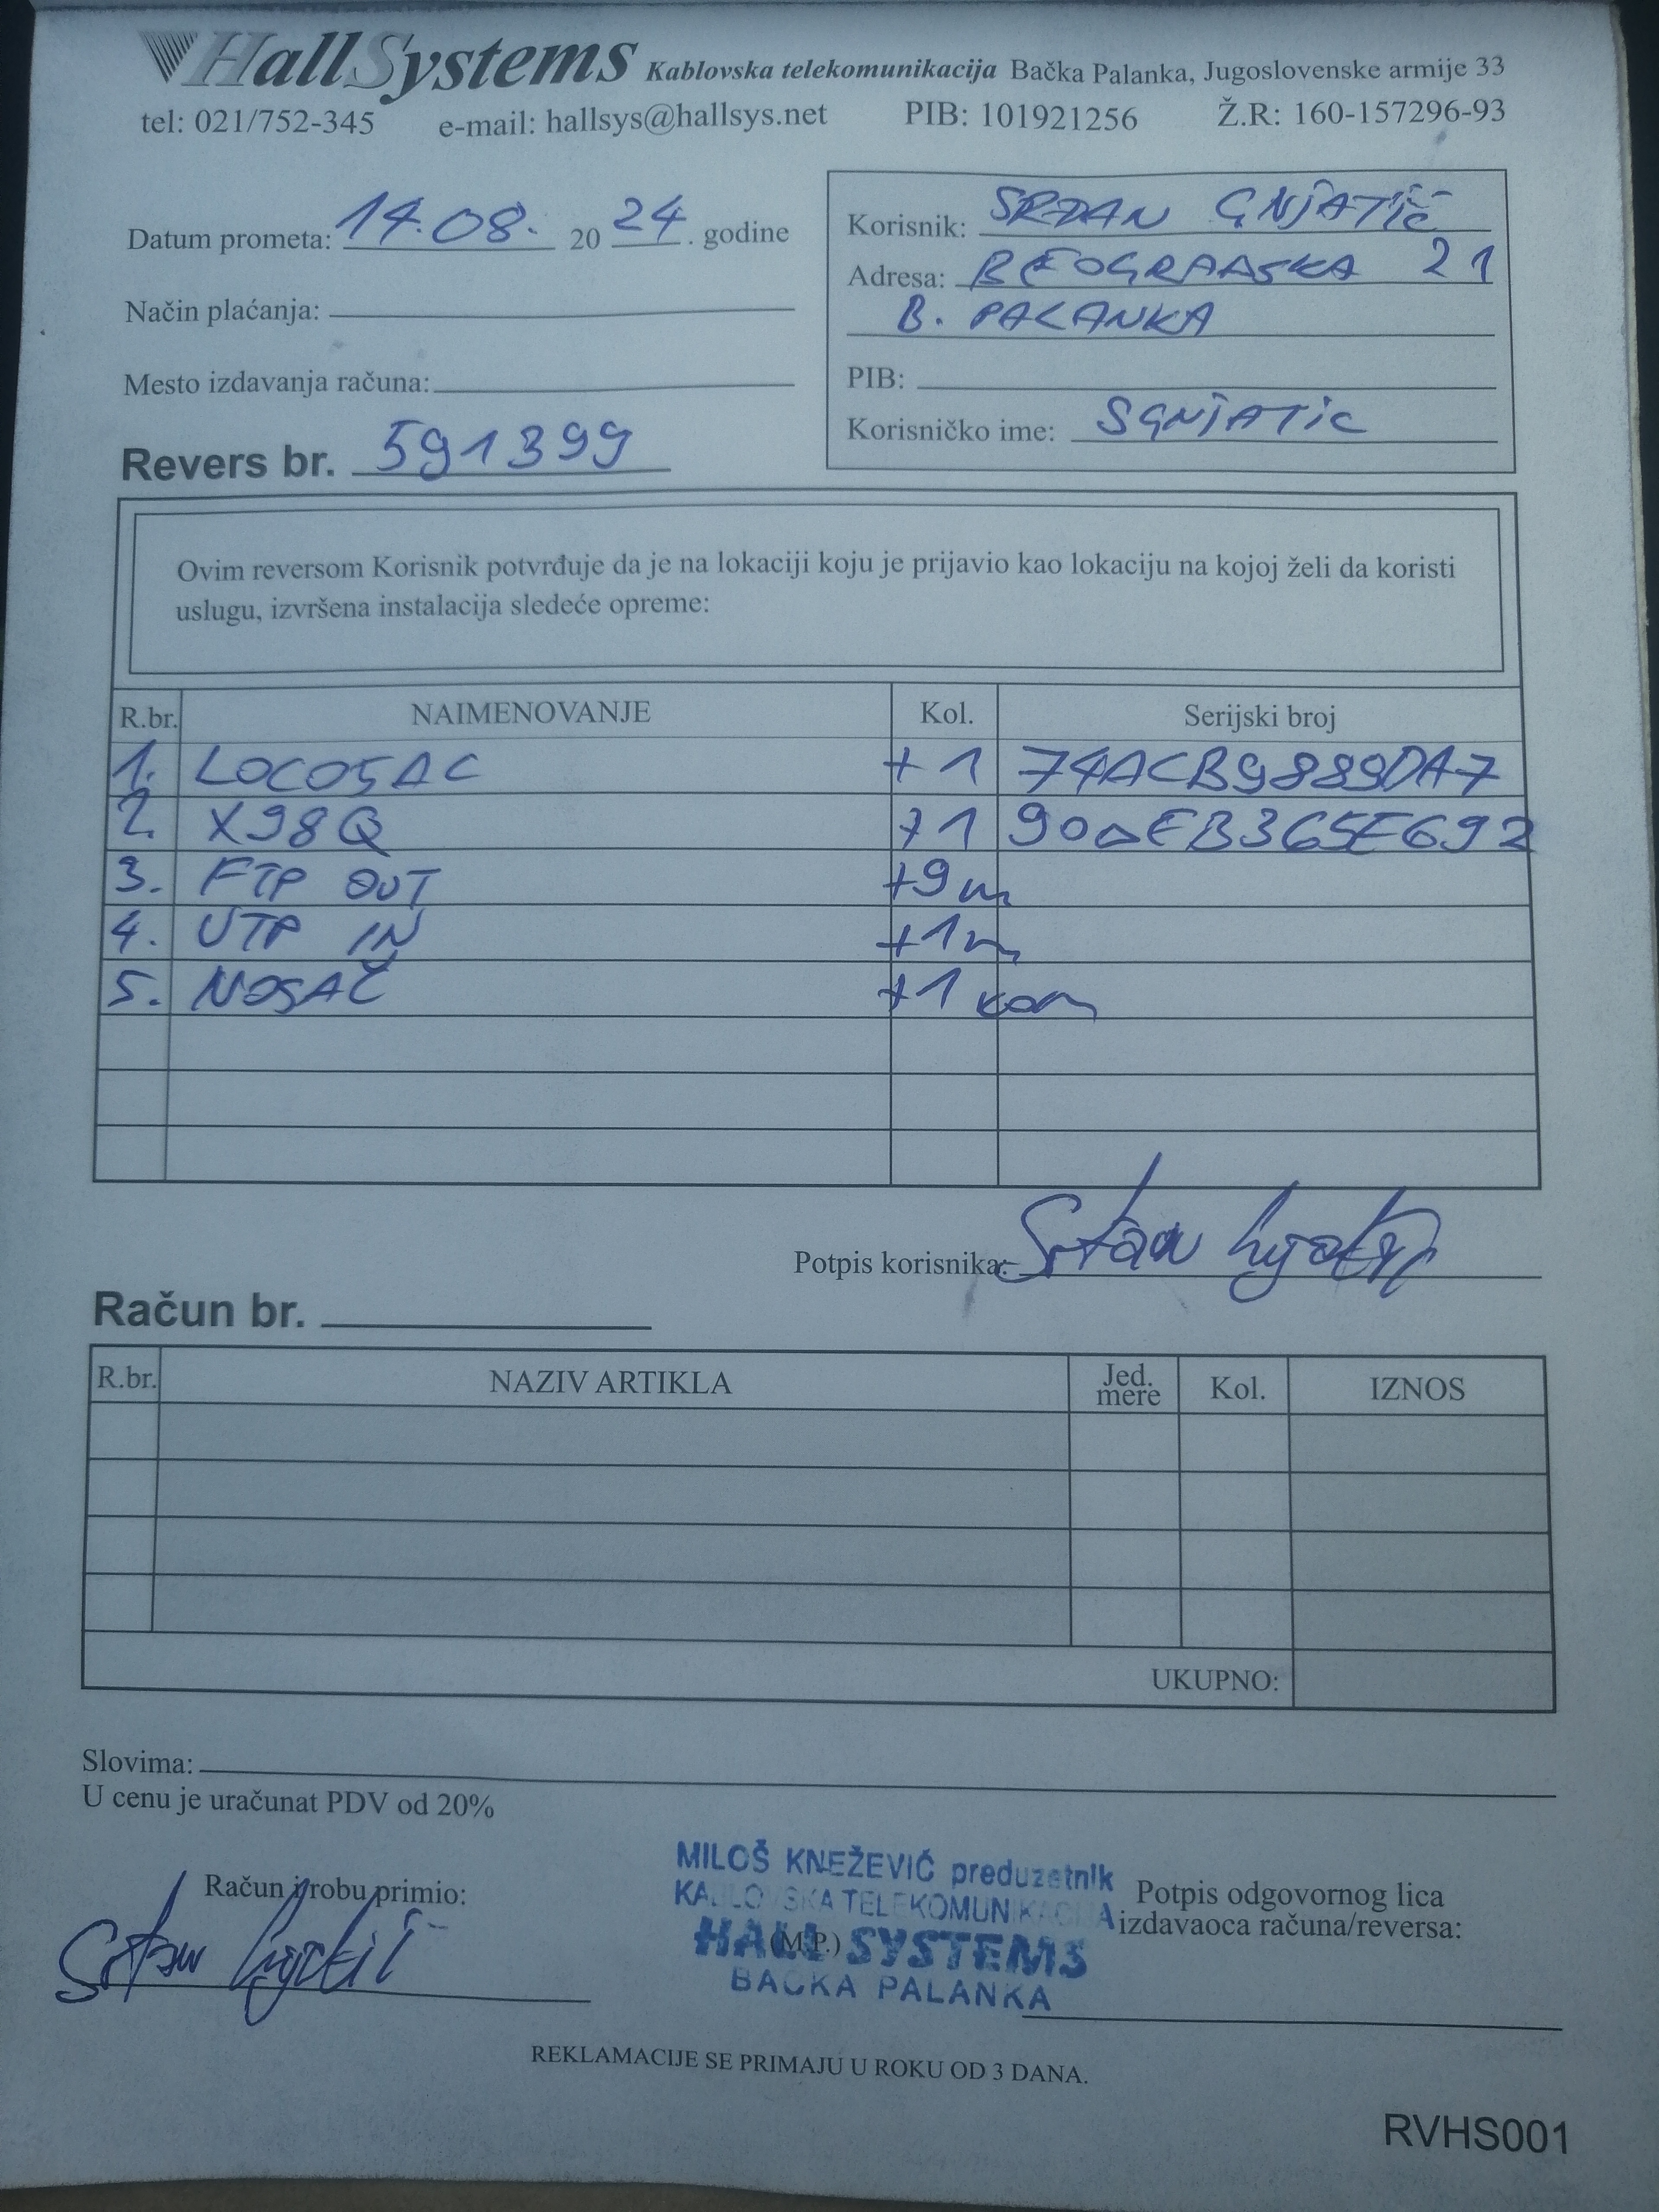 HallSystems Kablovska telekomunikacija Bačka Palanka, Jugoslovenske armije 33
tel: 021/752-345 e-mail: hallsys@hallsys.net PIB: 101921256 Ž.R: 160-157296-93
Datum prometa: 14.08. 2024. godine
Način plaćanja:
Mesto izdavanja računa:
Revers br. 591399
Korisnik: SRĐAN GNJATIĆ
Adresa: BEOGRADSKA 21
B. PALANKA
PIB:
Korisničko ime: SGNJATIC
Ovim reversom Korisnik potvrđuje da je na lokaciji koju je prijavio kao lokaciju na kojoj želi da koristi
uslugu, izvršena instalacija sledeće opreme:
R.br. NAIMENOVANJE Kol. Serijski broj
1. LOCO5AC +1 74ACB9889DA7
2. X98Q +1 90DEB365E692
3. FTP OUT +9m
4. UTP IN +1m
5. NOSAČ +1 kom
Potpis korisnika:
Račun br.
R.br. NAZIV ARTIKLA Jed. mere Kol. IZNOS
UKUPNO:
Slovima:
U cenu je uračunat PDV od 20%
Račun i robu primio:
MILOŠ KNEŽEVIĆ preduzetnik
KABLOVSKA TELEKOMUNIKACIJA
(M.P.) HALL SYSTEMS
BAČKA PALANKA
Potpis odgovornog lica
izdavaoca računa/reversa:
REKLAMACIJE SE PRIMAJU U ROKU OD 3 DANA.
RVHS001